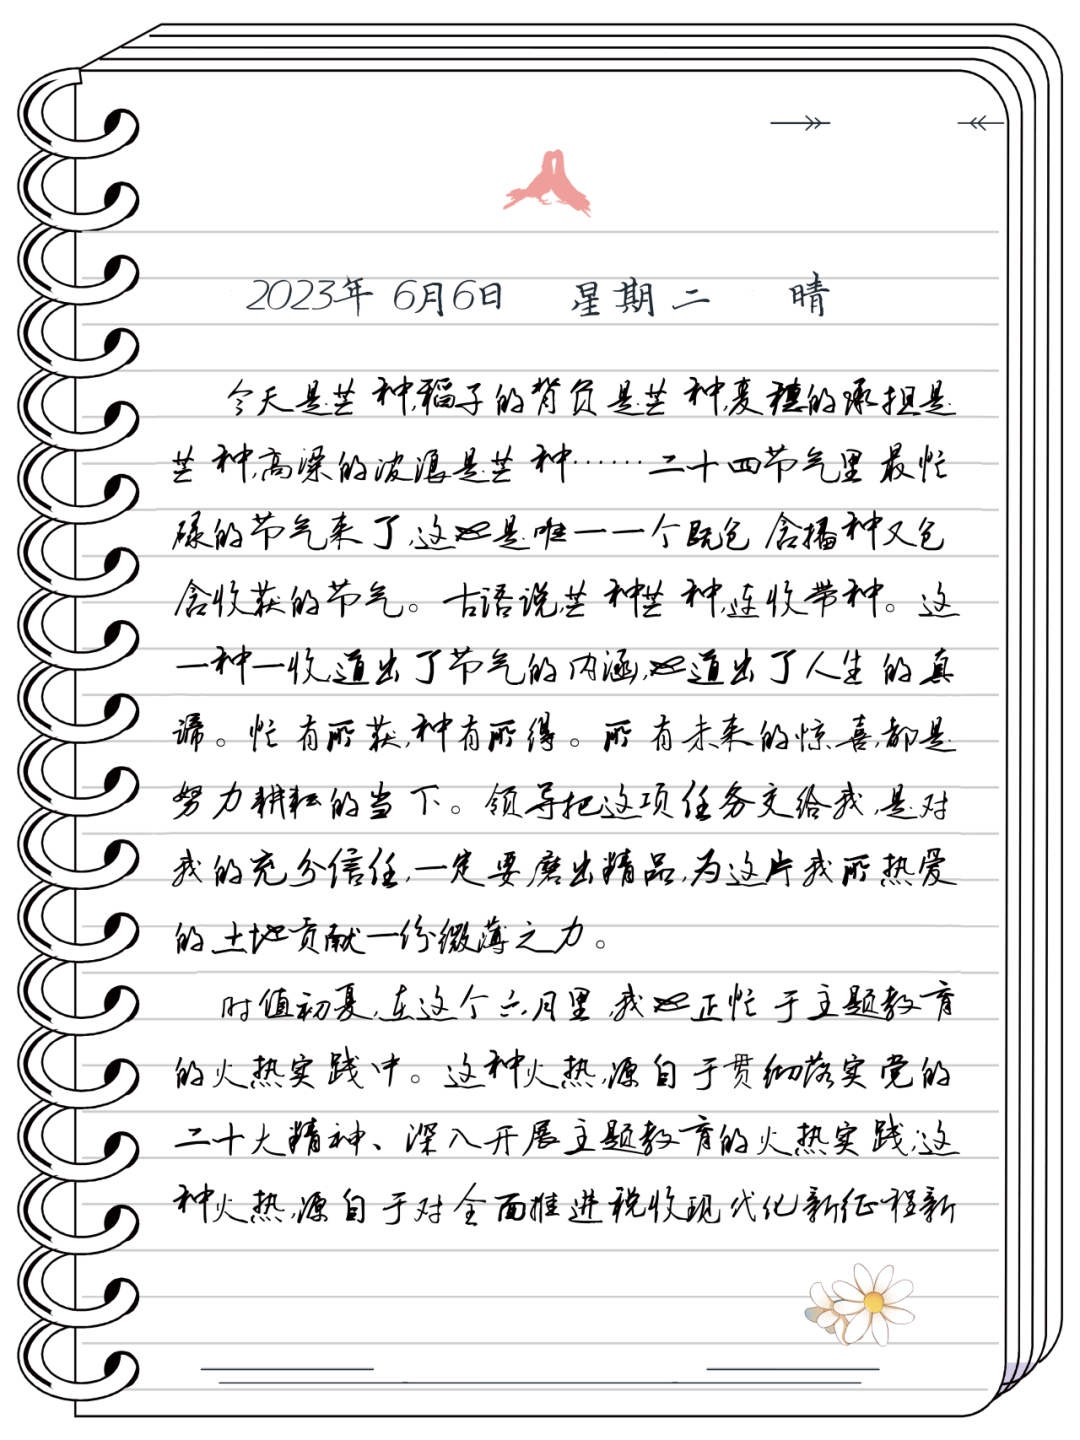 2023年 6月6日 星期二 晴
今天是芒种,稻子的背负是芒种,麦穗的承担是
芒种,高粱的波浪是芒种……二十四节气里最忙
碌的节气来了,这也是唯一一个既包含播种又包
含收获的节气。古语说,芒种芒种,连收带种。这
一种一收,道出了节气的内涵,也道出了人生的真
谛。忙有所获,种有所得。所有未来的惊喜,都是
努力耕耘的当下。领导把这项任务交给我,是对
我的充分信任,一定要磨出精品,为这片我所热爱
的土地贡献一份微薄之力。
时值初夏,在这个六月里,我也正忙于主题教育
的火热实践中。这种火热,源自于贯彻落实党的
二十大精神、深入开展主题教育的火热实践;这
种火热,源自于对全面推进税收现代化新征程新